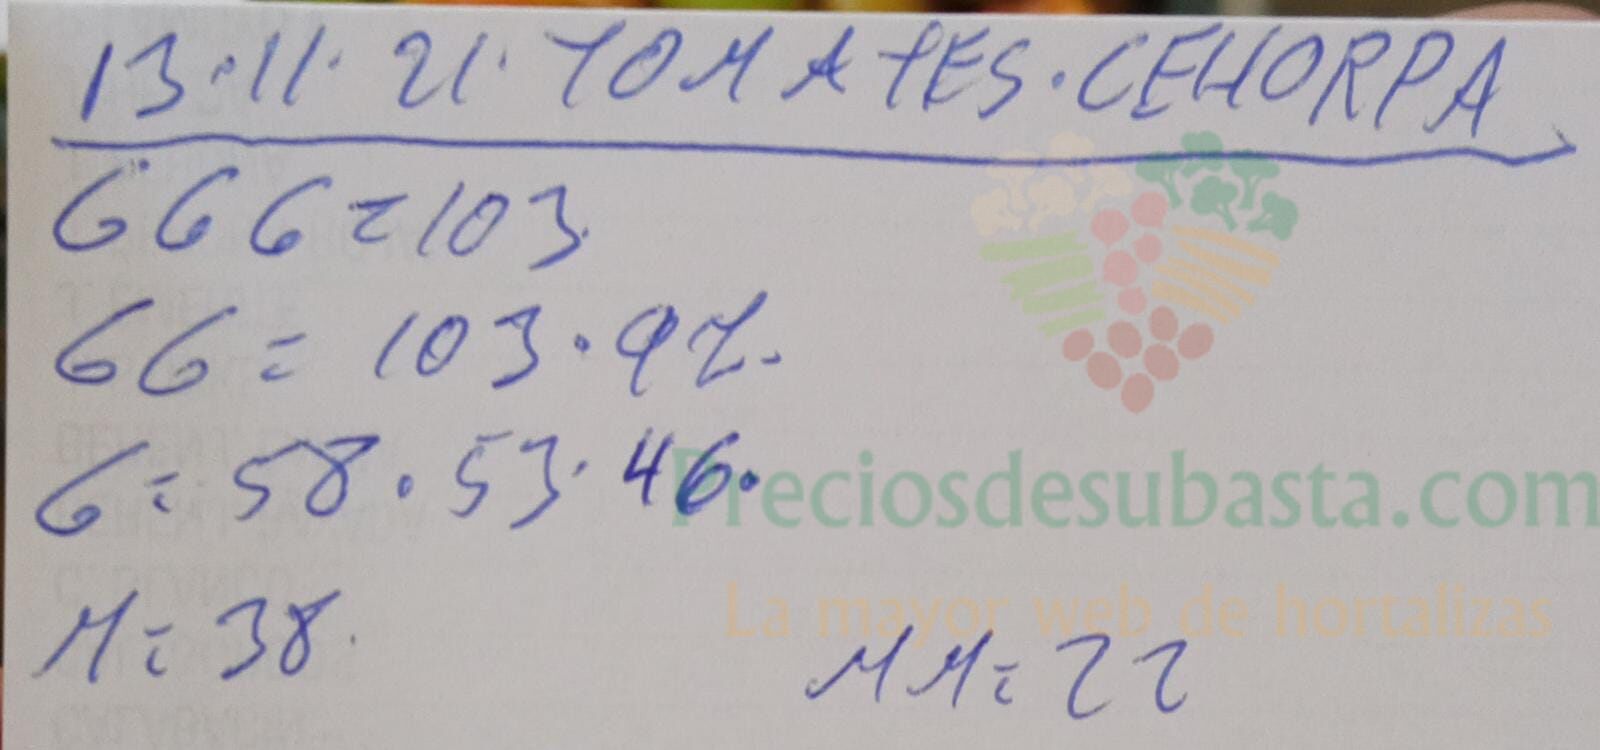 13·11·21·TOMATES·CEHORPA
GGG=103
GG=103·92·
G=58·53·46·
Preciosdesubasta.com
La mayor web de hortalizas
M=38·
MM=22